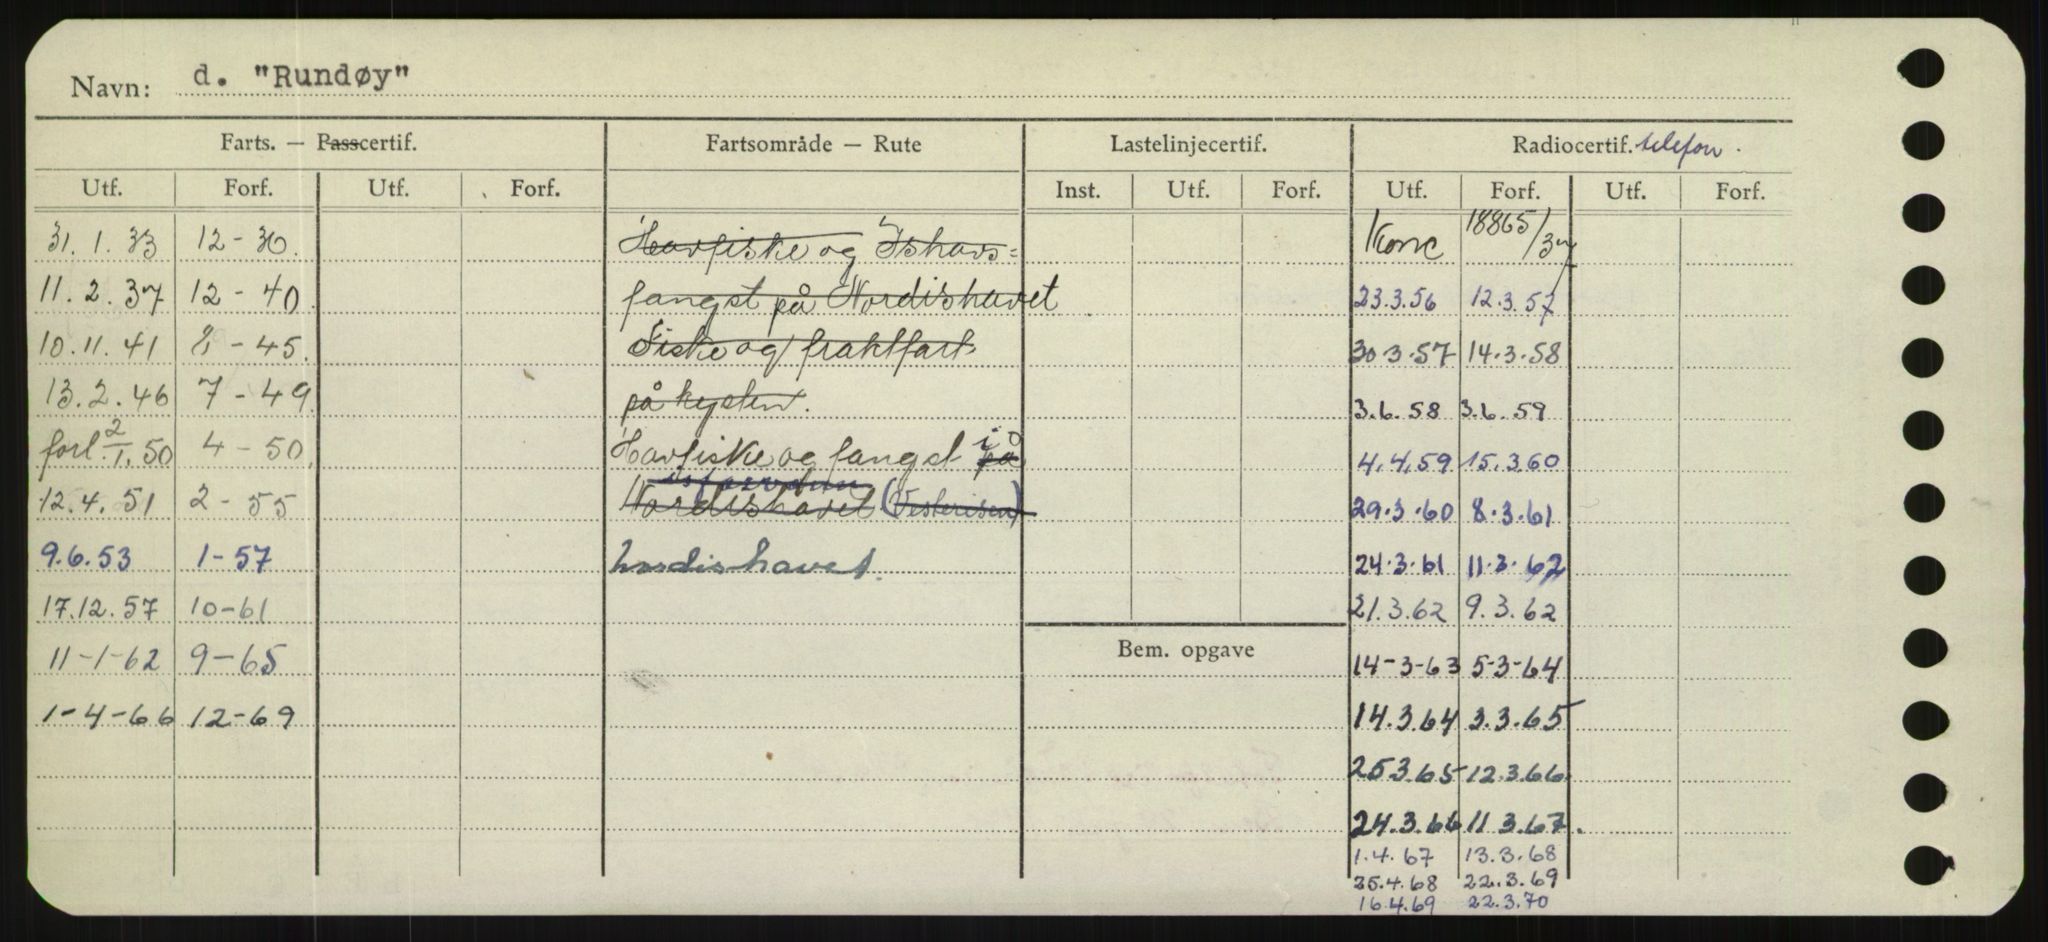 Navn: d. "Rundøy"
Farts. — Passcertif. Fartsområde — Rute Lastelinjecertif. Radiocertif. telefon.
Utf. Forf. Utf. Forf. Inst. Utf. Forf. Utf. Forf. Utf. Forf.
31.1.33 12-36. Havfiske og Ishavs= Konc 18865/37
11.2.37 12-40. fangst på Nordishavet 23.3.56 12.3.57
10.11.41 8-45. Fiske og fraktfart 30.3.57 14.3.58
13.2.46 7-49. på kysten. 3.6.58 3.6.59
forl 2/1.50 4-50. Havfiske og fangst i på 4.4.59 15.3.60
12.4.51 2-55 Nordishavet (Vesterisen) 29.3.60 8.3.61
9.6.53 1-57 nordishavet. 24.3.61 11.3.62
17.12.57 10-61 21.3.62 9.3.62
Bem. opgave
11-1-62 9-65 14-3-63 5-3-64
1-4-66 12-69 14.3.64 3.3.65
25.3.65 12.3.66
24.3.66 11 3.67.
1.4.67 13.3.68
25.4.68 22.3.69
16.4.69 22.3.70